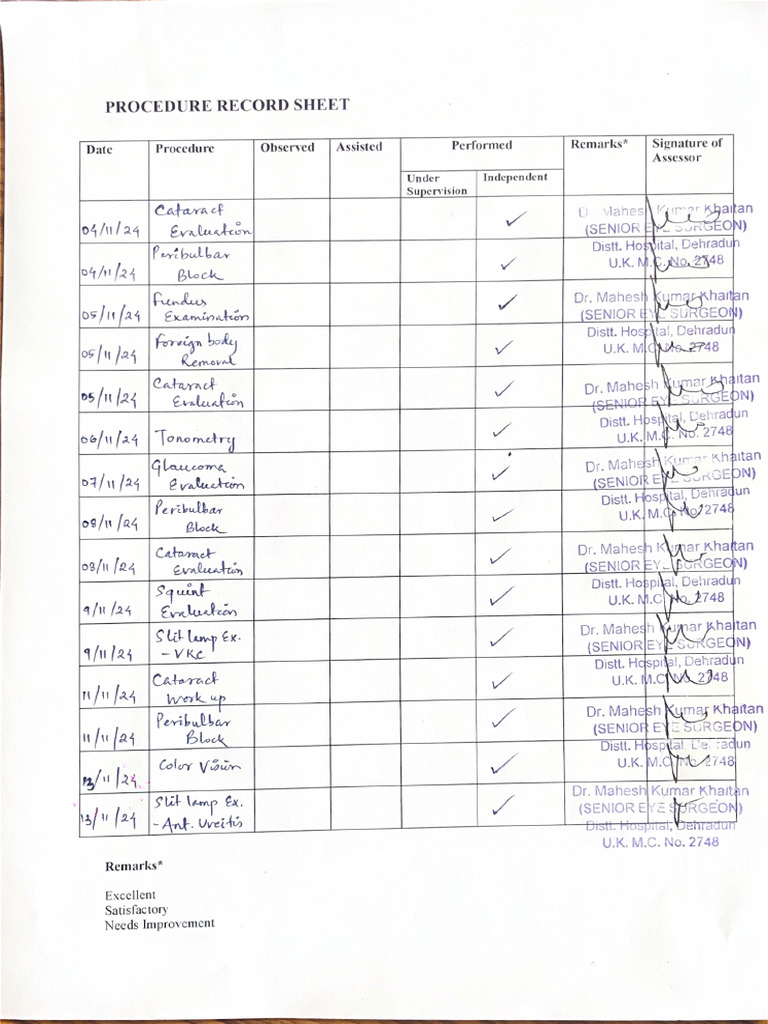 PROCEDURE RECORD SHEET
Date Procedure Observed Assisted Performed Remarks* Signature of
Assessor
Under
Supervision Independent
04/11/24 Cataract
Evaluation ✓ Dr. Mahesh Kumar Khaitan
(SENIOR EYE SURGEON)
04/11/24 Peribulbar
Block ✓ Distt. Hospital, Dehradun
U.K. M.C. No. 2748
05/11/24 Fundus
Examination ✓ Dr. Mahesh Kumar Khaitan
(SENIOR EYE SURGEON)
05/11/24 Foreign body
Removal ✓ Distt. Hospital, Dehradun
U.K. M.C. No. 2748
05/11/24 Cataract
Evaluation ✓ Dr. Mahesh Kumar Khaitan
(SENIOR EYE SURGEON)
06/11/24 Tonometry ✓ Distt. Hospital, Dehradun
U.K. M.C. No. 2748
07/11/24 Glaucoma
Evaluation ✓ Dr. Mahesh Kumar Khaitan
(SENIOR EYE SURGEON)
08/11/24 Peribulbar
Block ✓ Distt. Hospital, Dehradun
U.K. M.C. No. 2748
08/11/24 Cataract
Evaluation ✓ Dr. Mahesh Kumar Khaitan
(SENIOR EYE SURGEON)
9/11/24 Squint
Evaluation ✓ Distt. Hospital, Dehradun
U.K. M.C. No. 2748
9/11/24 Slit lamp Ex.
- VKC ✓ Dr. Mahesh Kumar Khaitan
(SENIOR EYE SURGEON)
11/11/24 Cataract
Work up ✓ Distt. Hospital, Dehradun
U.K. M.C. No. 2748
11/11/24 Peribulbar
Block ✓ Dr. Mahesh Kumar Khaitan
(SENIOR EYE SURGEON)
13/11/24. Color Vision ✓ Distt. Hospital, Dehradun
U.K. M.C. No. 2748
13/11/24 Slit lamp Ex.
- Ant. Uveitis ✓ Dr. Mahesh Kumar Khaitan
(SENIOR EYE SURGEON)
Distt. Hospital, Dehradun
U.K. M.C. No. 2748
Remarks*
Excellent
Satisfactory
Needs Improvement